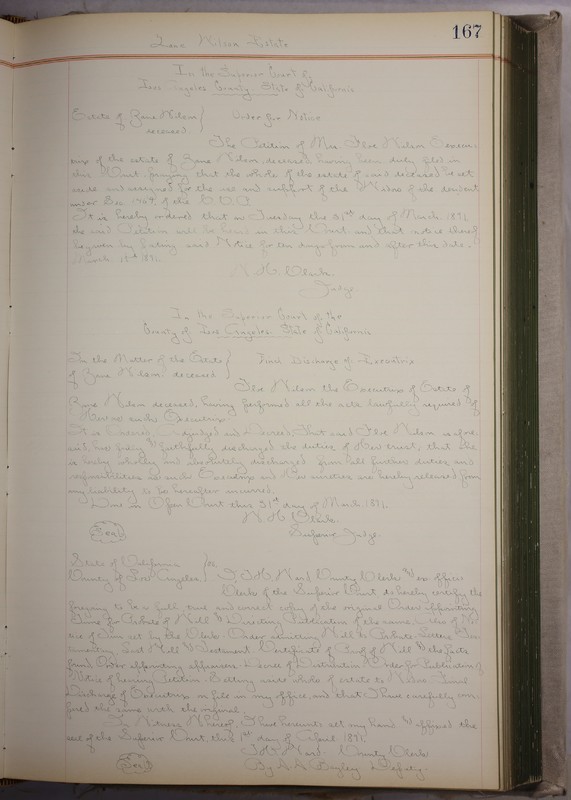 167
Zane Nelson Estate
In the Superior Court of
Los Angeles County, State of California
Estate of Zane Nelson } Order for Notice
deceased
The Petition of Mrs. Nelson Execu-
trix of the estate of Zane Nelson, deceased, having been duly filed in
this Court, praying that the whole of the estate of said deceased be set
aside and assigned for the use and support of the Widow of the decedent
under Sec. of the C.C.P.
It is hereby ordered that on Tuesday the 31st day of March 1891
the said Petition will be heard in this Court and that notice thereof
be given by Posting said Notice for ten days from and after this date.
March 1891.
Clark
Judge.
In the Superior Court of the
County of Los Angeles State of California
In the Matter of the Estate } Final Discharge of Executrix
of Zane Nelson deceased
Nelson the Executrix of Estate of
Zane Nelson deceased, having performed all the acts lawfully required of
Her as such Executrix
It is Ordered, adjudged and decreed, That said Nelson as afore-
said, has fully & faithfully discharged the duties of Her trust, that she
is hereby wholly and absolutely discharged from all further duties and
responsibilities as such Executrix and Her sureties are hereby released from
any liability to be hereafter incurred.
Done in Open Court this 31st day of March 1891.
Clark.
Superior Judge.
Seal
State of California } ss.
County of Los Angeles I, T.H. Ward County Clerk & ex officio
Clerk of the Superior Court do hereby certify the
foregoing to be a full, true and correct copy of the original Order appointing
Time for Probate of Will & Directing Publication of the same, No-
tice of Time set by the Clerk. Order admitting Will to Probate, Letters Tes-
tamentary, Last Will & Testament, Certificate of Proof of Will & the facts
found, Order appointing appraisers, Decree of Distribution Order for Publication of
Notice of hearing Petition. Setting aside whole of estate to Widow Final
Discharge of Executrix on file in my office, and that I have carefully com-
pared the same with the original.
In Witness Whereof, I have hereunto set my hand & affixed the
seal of the Superior Court, this 1st day of April 1891
T.H. Ward. County Clerk
By A.A. Bayley Deputy.
Seal